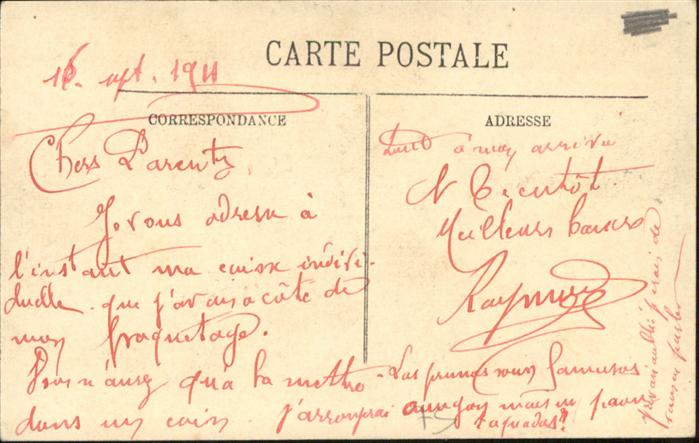 CARTE POSTALE
16. sept. 1911
CORRESPONDANCE
ADRESSE
Chers Parents,
Je vous adresse à
l'instant ma caisse indivi-
duelle que j'avais à côté de
mon paquetage.
Vous n'aurez qu'à la mettre
dans un coin. J'arrangerai
tout à mon arrivée
A Bientôt.
Meilleurs baisers
Raymond
Les prunes sont fameuses
mais un peu
j'avais oublié de